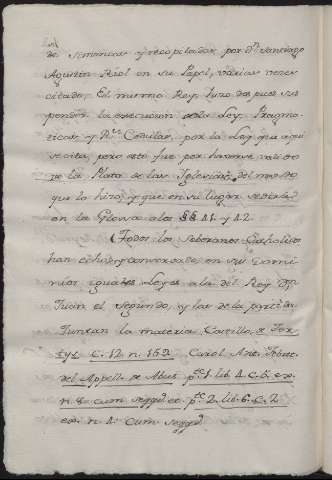 de Simancas y recopilados por Dn. Santiago
Agustin Riol en su Papel, varias veces
citado. El mismo Rey hubo despues sus
pender la execucion de la Ley, Pragma
ticas, y Rs. Cedulas, por la Ley que aqui
se cita, pero esto fue por haverse valido
de la Plata de las Iglesias, del modo
que lo hizo, y que en su lugar se dirá
en la Glosa a los §§ 41. y 42.
Todos los Soberanos Catholicos
han echado y conservado en sus Domi
nios iguales Leyes a la del Rey Dn.
Juan el segundo, y las de la partida.
Juntan la materia Castillo, de Ter
tys C. 12. n. 152 Carol. Ant.
del Appell. de Abus. ps. 1. lib. 4. C. 6. ex.
n. 8. cum seqq. et ps. 2. lib. 6. C. 2
ex. n. 4. Cum seqq.